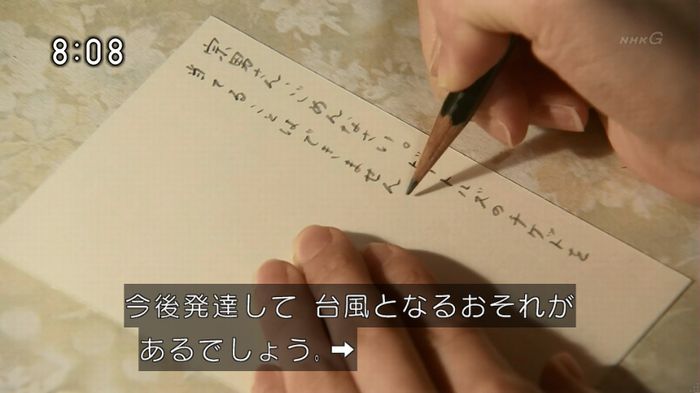 8:08
NHK G
宗男さん、ごめんなさい。ビートルズのチケットを
当てることはできません
今後発達して 台風となるおそれが
あるでしょう。➡